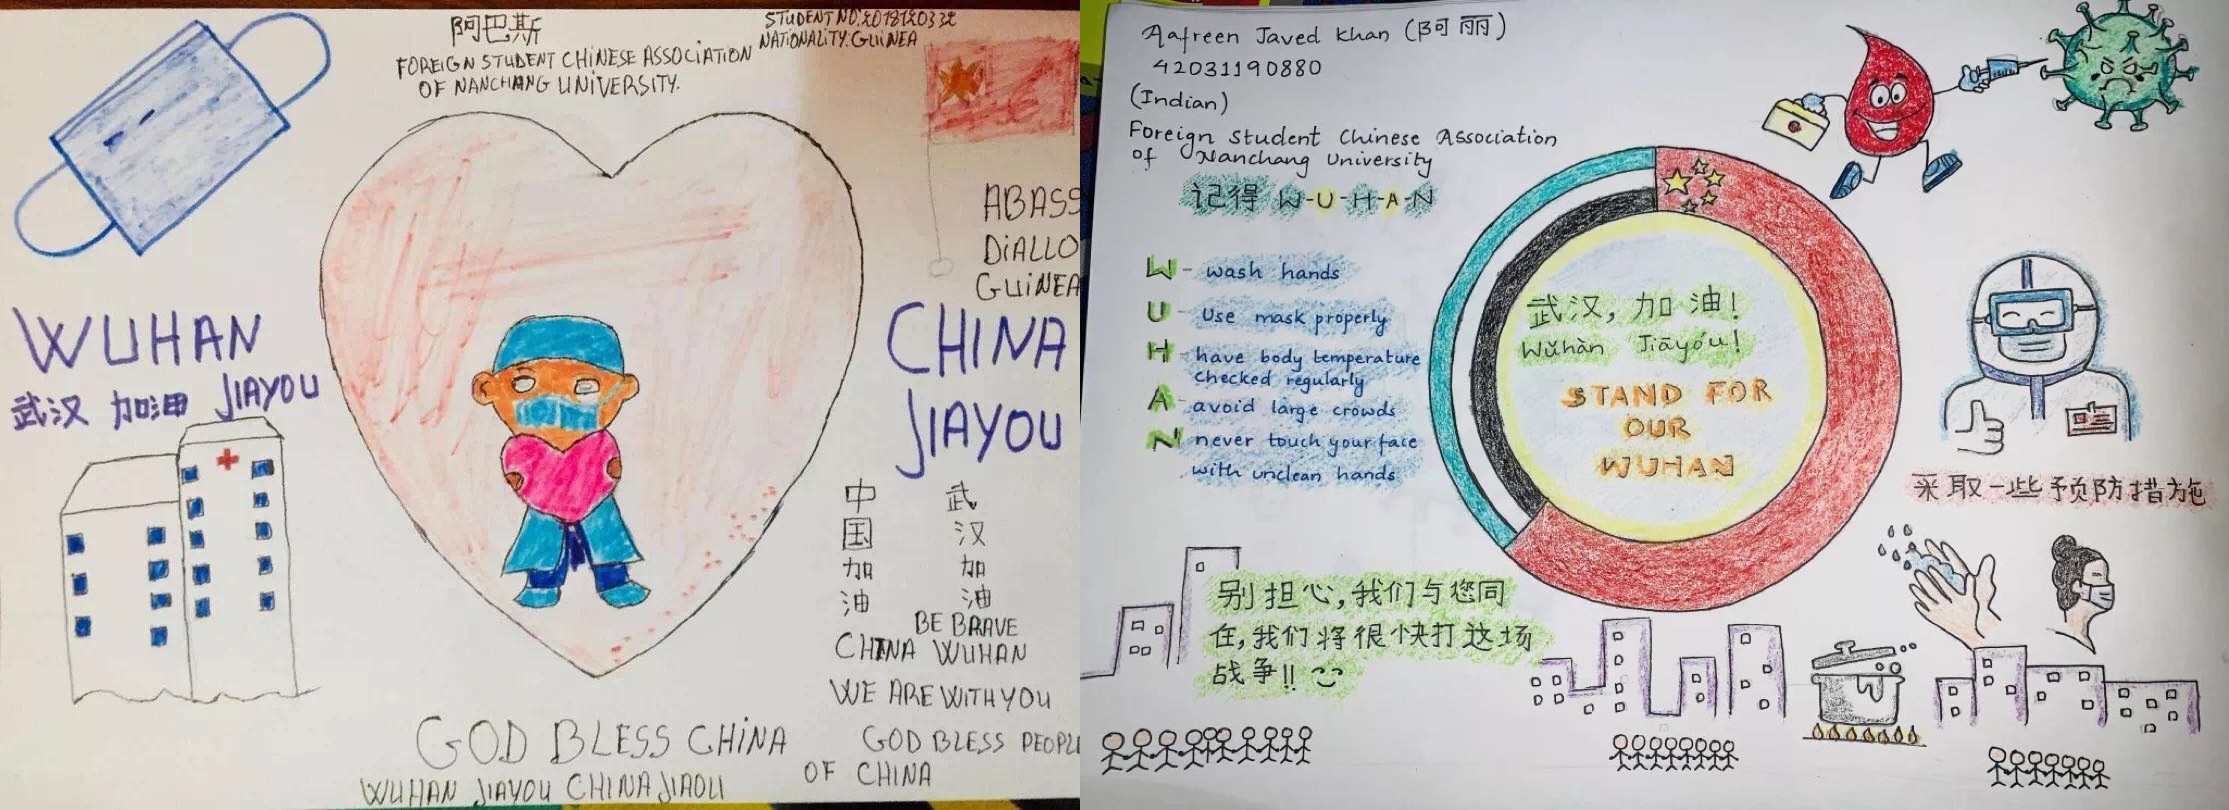 阿巴斯
FOREIGN STUDENT CHINESE ASSOCIATION
OF NANCHANG UNIVERSITY.
STUDENT NO:
NATIONALITY: GUINEA
ABASS
DIALLO
GUINEA
WUHAN
武汉 加油 JIAYOU
CHINA
JIAYOU
中国加油
武汉加油
BE BRAVE
CHINA WUHAN
WE ARE WITH YOU
GOD BLESS CHINA
GOD BLESS PEOPLE
OF CHINA
WUHAN JIAYOU CHINA JIAOU
Aafreen Javed Khan (阿丽)
42031190880
(Indian)
Foreign Student Chinese Association
of Nanchang University
记得 W-U-H-A-N
W - wash hands
U - Use mask properly
H - have body temperature
checked regularly
A - avoid large crowds
N - never touch your face
with unclean hands
武汉，加油！
Wǔhàn Jiāyóu!
STAND FOR
OUR
WUHAN
采取一些预防措施
别担心，我们与您同
在，我们将很快打这场
战争!!